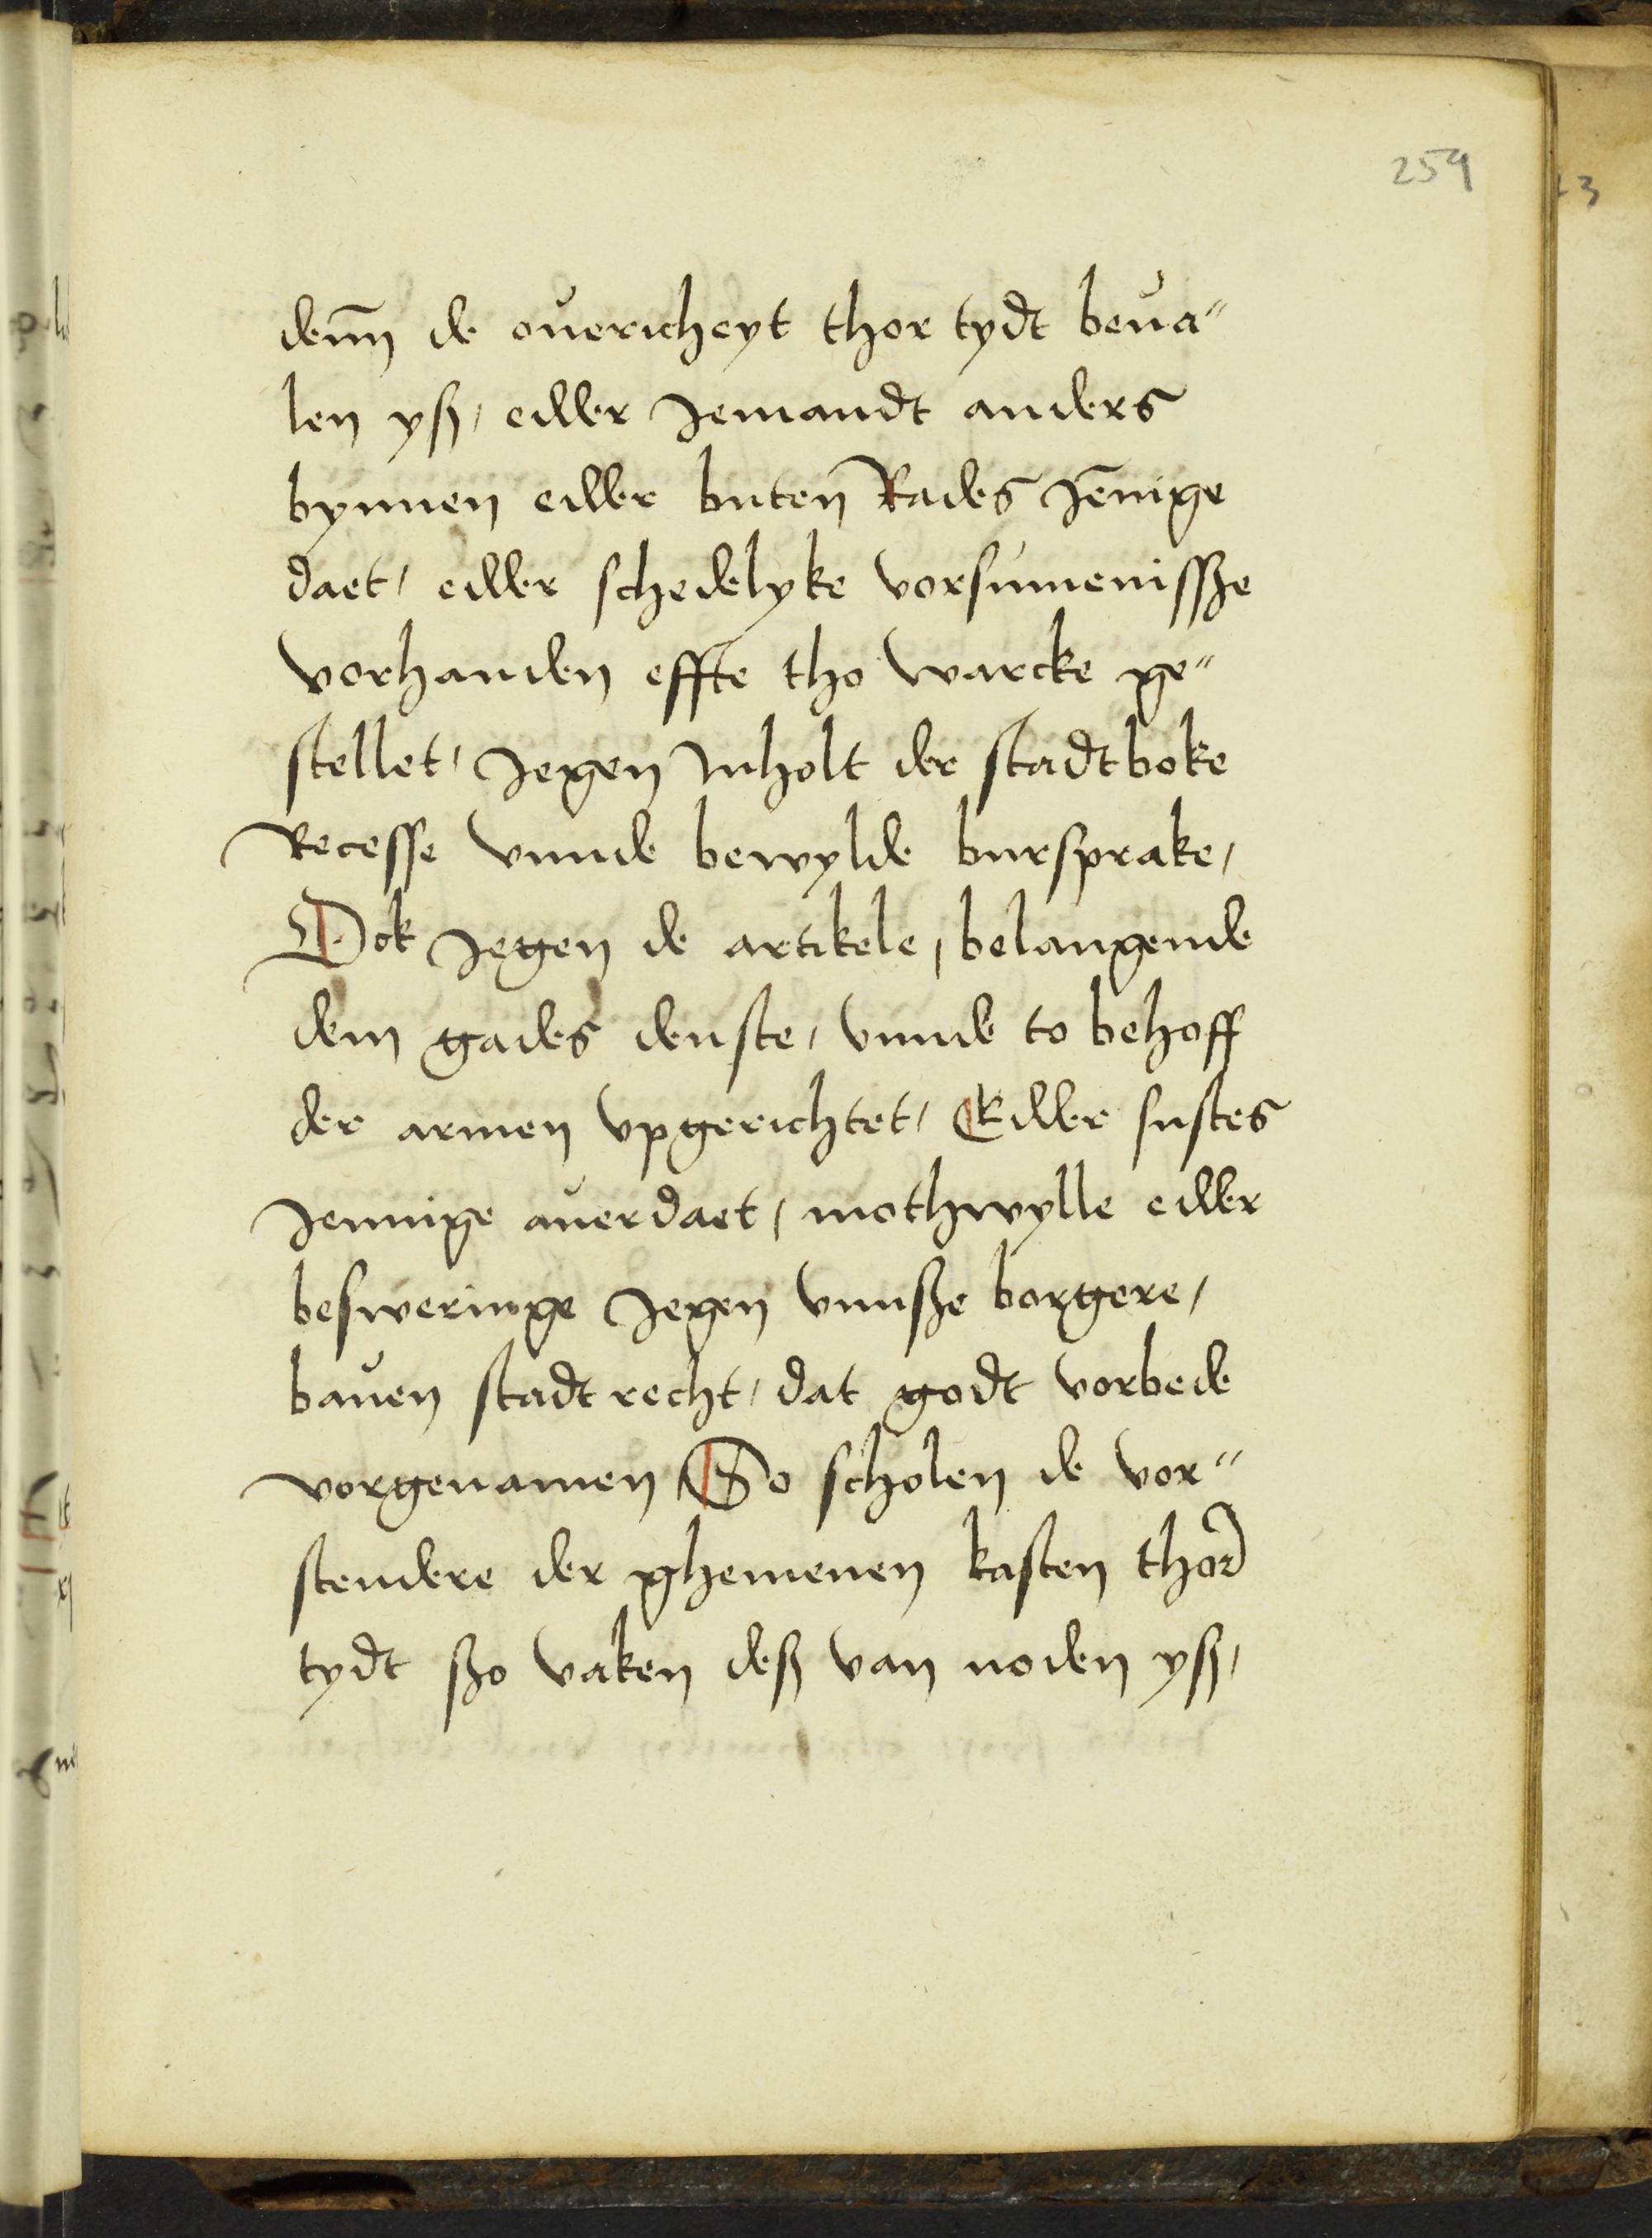 259
denn de ouericheyt thor tydt beua⸗
len yß, edder Jemandt anders
bynnen edder buten Rades Jenige
daet, edder schedelyke vorsumenissze
vorhanden effte tho warcke ge⸗
stellet, Jegen Inholt der stadtboke
Recesse vnnde bewylde bursprake,
Ock Jegen de artikele, belangende
dem gades denste, vnnde to behoff
der armen vpgerichtet, Edder sustes
Jennige auerdaet, mothwylle edder
besweringe Jegen vnnsze borgere,
bauen stadt recht, dat godt vorbede
vorgenamen So scholen de vor⸗
stendere der ghemenen kasten thor
tydt szo vaken deß van noden yß,